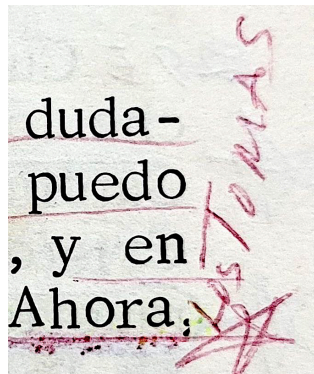 duda-
puedo
, y en
Ahora,
TORIAS